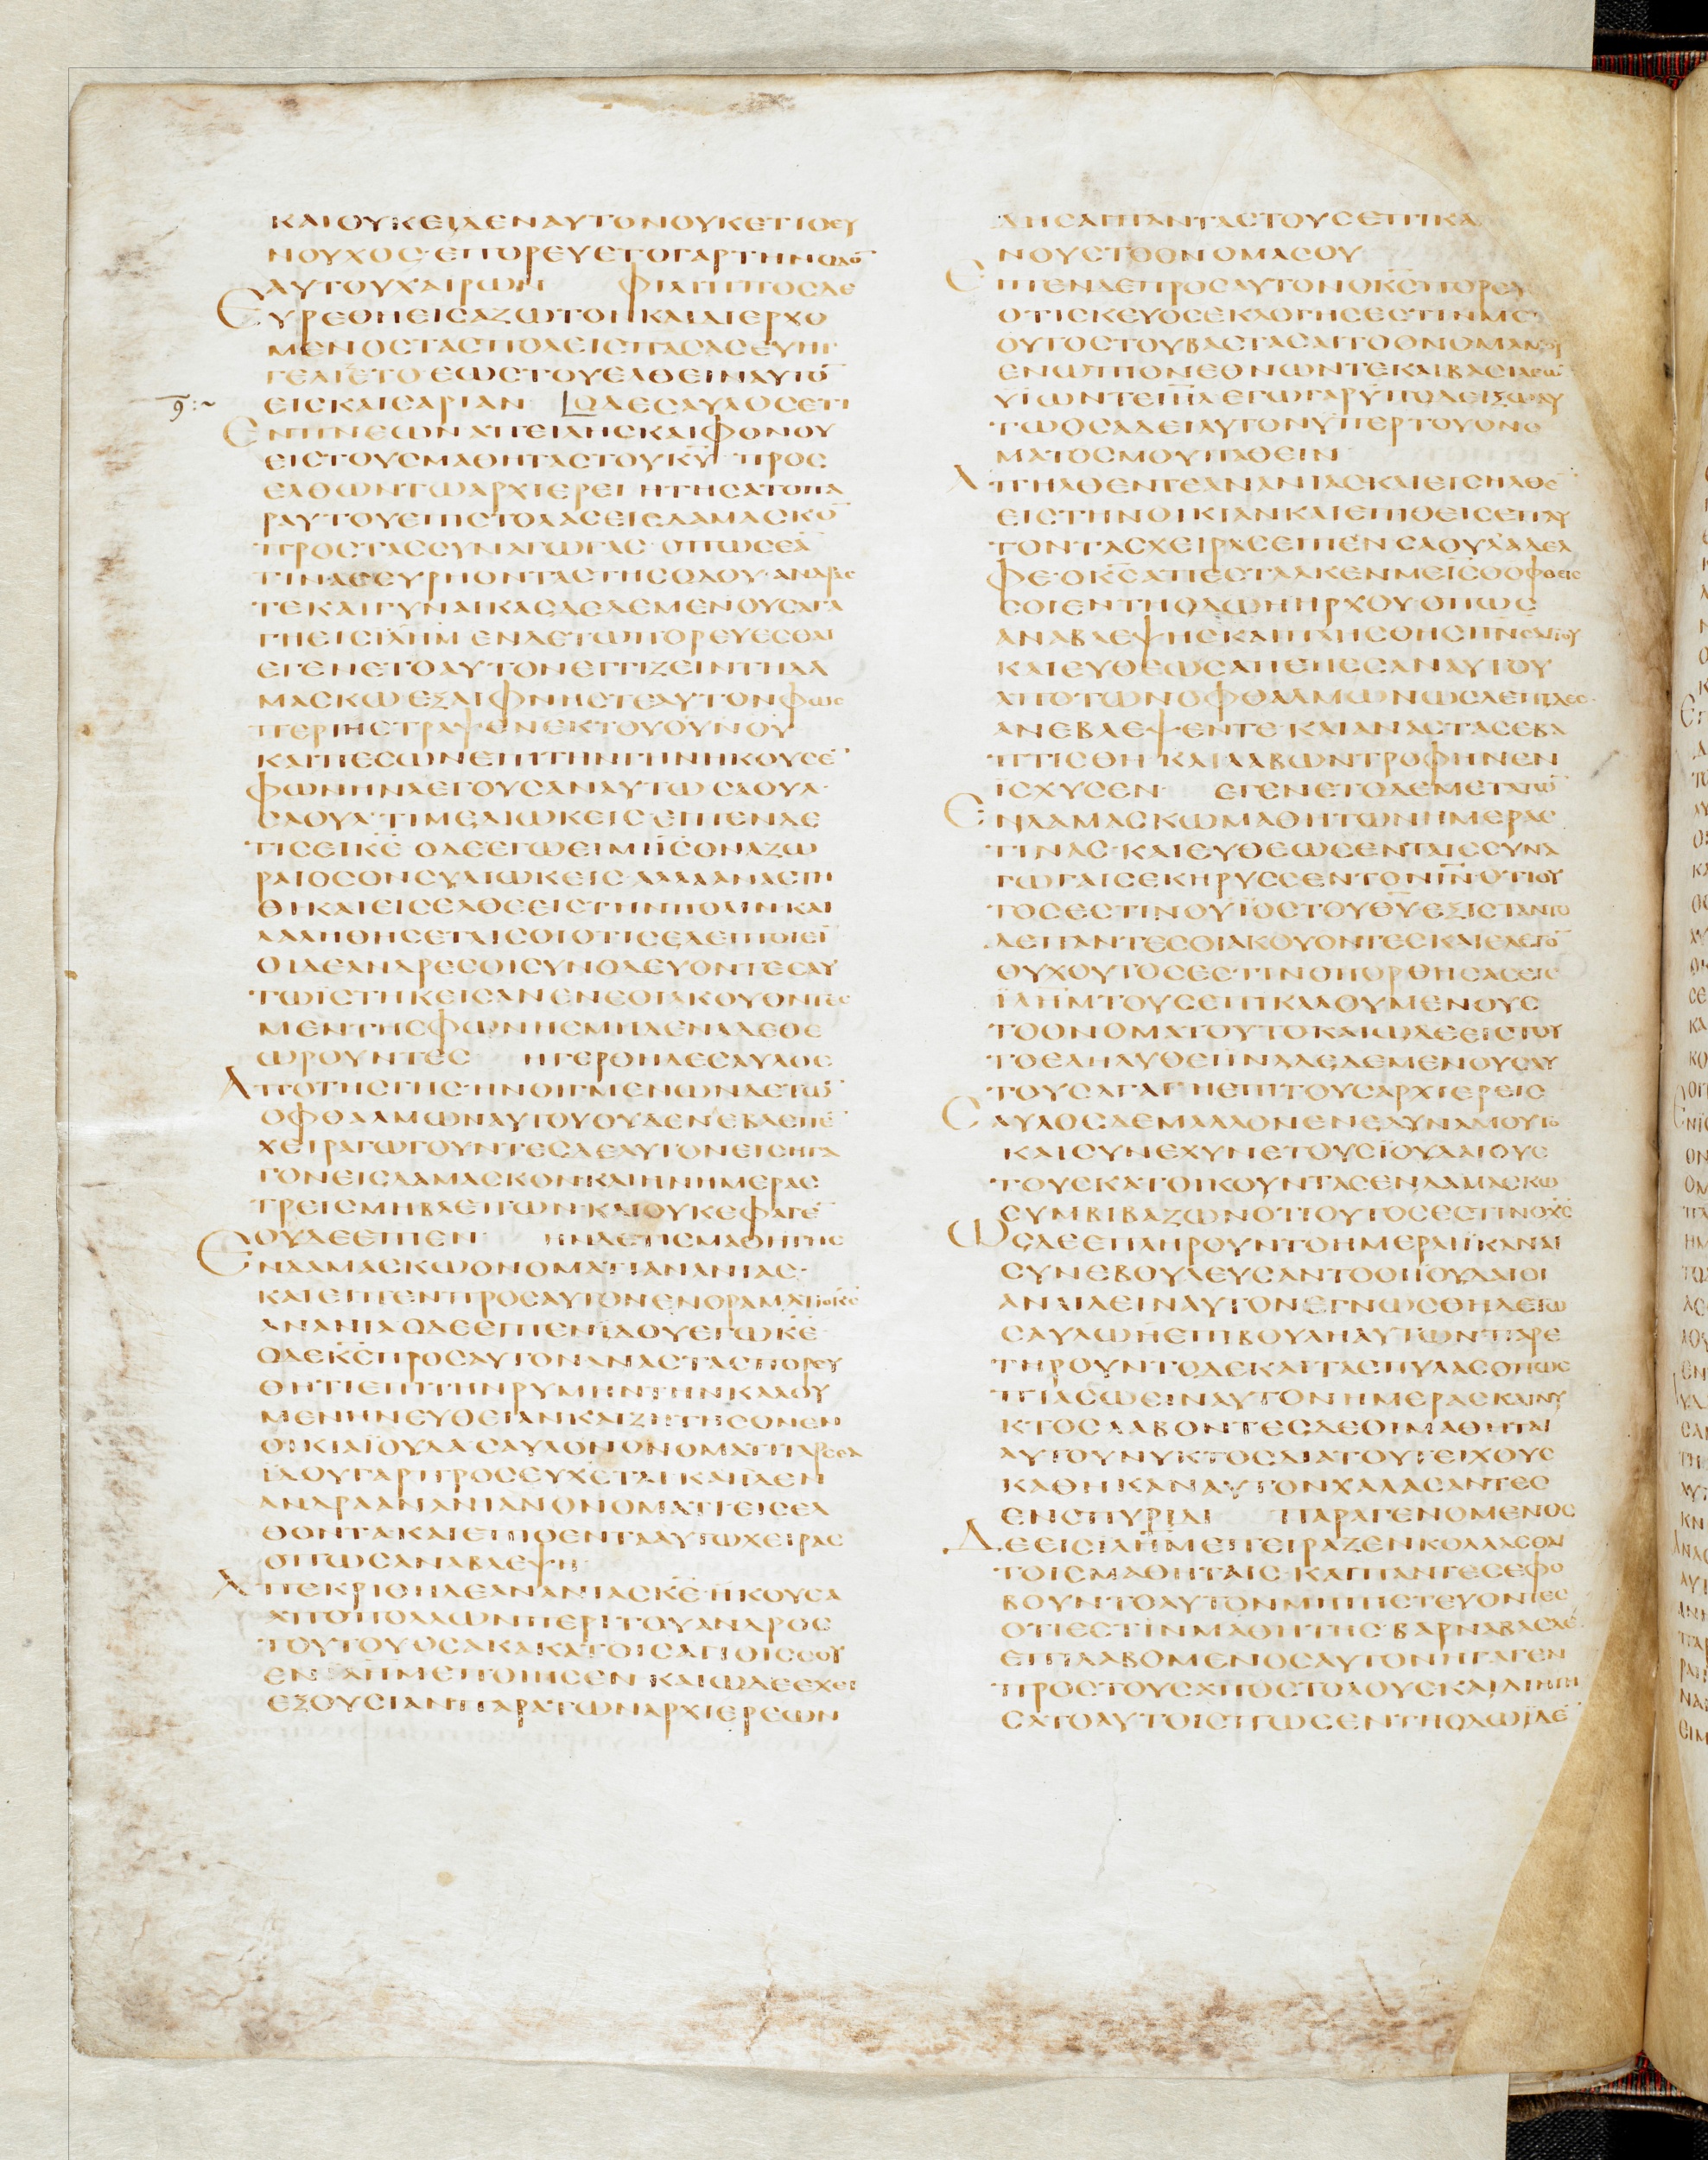 ΚΑΙΟΥΚΕΙΔΕΝΑΥΤΟΝΟΥΚΕΤΙΟΕΥ
ΝΟΥΧΟΣ·ΕΠΟΡΕΥΕΤΟΓΑΡΤΗΝΟΔΟ̅
ΑΥΤΟΥΧΑΙΡΩΝ ΦΙΛΙΠΠΟΣΔΕ
ΕΥΡΕΘΗΕΙΣΑΖΩΤΟΝΚΑΙΔΙΕΡΧΟ
ΜΕΝΟΣΤΑΣΠΟΛΕΙΣΠΑΣΑΣΕΥΗΓ
ΓΕΛΙΖΕΤΟ·ΕΩΣΤΟΥΕΛΘΕΙΝΑΥΤΟ̅
ΕΙΣΚΑΙΣΑΡΙΑΝ ΟΔΕΣΑΥΛΟΣΕΤΙ
ΕΝΠΝΕΩΝΑΠΕΙΛΗΣΚΑΙΦΟΝΟΥ
ΕΙΣΤΟΥΣΜΑΘΗΤΑΣΤΟΥΚ̅Υ̅ ΠΡΟΣ
ΕΛΘΩΝΤΩΑΡΧΙΕΡΕΙ ΗΤΗΣΑΤΟΠΑ
ΡΑΥΤΟΥΕΠΙΣΤΟΛΑΣΕΙΣΔΑΜΑΣΚΟ̅
ΠΡΟΣΤΑΣΣΥΝΑΓΩΓΑΣ·ΟΠΩΣΕΑ̅
ΤΙΝΑΣΕΥΡΗΟΝΤΑΣΤΗΣΟΔΟΥ·ΑΝΔΡΑΣ
ΤΕΚΑΙΓΥΝΑΙΚΑΣΔΕΔΕΜΕΝΟΥΣΑΓΑ
ΓΗΕΙΣΙ̅Λ̅Η̅Μ̅ ΕΝΔΕΤΩΠΟΡΕΥΕΣΘΑΙ
ΕΓΕΝΕΤΟΑΥΤΟΝΕΓΓΙΖΕΙΝΤΗΔΑ
ΜΑΣΚΩΕΞΑΙΦΝΗΣΤΕΑΥΤΟΝΦΩΣ
ΠΕΡΙΗΣΤΡΑΨΕΝΕΚΤΟΥΟΥΝΟΥ
ΚΑΙΠΕΣΩΝΕΠΙΤΗΝΓΗΝΗΚΟΥΣΕ̅
ΦΩΝΗΝΛΕΓΟΥΣΑΝΑΥΤΩ ΣΑΟΥΛ·
ΣΑΟΥΛ·ΤΙΜΕΔΙΩΚΕΙΣ·ΕΙΠΕΝΔΕ
ΤΙΣΕΙΚ̅Ε̅ ΟΔΕΕΓΩΕΙΜΙΙ̅Σ̅ΟΝΑΖΩ
ΡΑΙΟΣΟΝΣΥΔΙΩΚΕΙΣ·ΑΛΛΑΑΝΑΣΤΗ
ΘΙΚΑΙΕΙΣΕΛΘΕΕΙΣΤΗΝΠΟΛΙΝΚΑΙ
ΛΑΛΗΘΗΣΕΤΑΙΣΟΙΟΤΙΣΕΔΕΙΠΟΙΕΙ̅
ΟΙΔΕΑΝΔΡΕΣΟΙΣΥΝΟΔΕΥΟΝΤΕΣΑΥ
ΤΩΙΣΤΗΚΕΙΣΑΝΕΝΕΟΙΑΚΟΥΟΝΤΕΣ
ΜΕΝΤΗΣΦΩΝΗΣΜΗΔΕΝΑΔΕΘΕ
ΩΡΟΥΝΤΕΣ ΗΓΕΡΘΗΔΕΣΑΥΛΟΣ
ΑΠΟΤΗΣΓΗΣ·ΗΝΟΙΓΜΕΝΩΝΔΕΤΩ̅
ΟΦΘΑΛΜΩΝΑΥΤΟΥΟΥΔΕΝΕΒΛΕΠΕ̅
ΧΕΙΡΑΓΩΓΟΥΝΤΕΣΔΕΑΥΤΟΝΕΙΣΗΓΑ
ΓΟΝΕΙΣΔΑΜΑΣΚΟΝΚΑΙΗΝΗΜΕΡΑΣ
ΤΡΕΙΣΜΗΒΛΕΠΩΝ·ΚΑΙΟΥΚΕΦΑΓΕ̅
ΟΥΔΕΕΠΙΕΝ ΗΝΔΕΤΙΣΜΑΘΗΤΗΣ
ΕΝΔΑΜΑΣΚΩΟΝΟΜΑΤΙΑΝΑΝΙΑΣ·
ΚΑΙΕΙΠΕΝΠΡΟΣΑΥΤΟΝΕΝΟΡΑΜΑΤΙΟΚ̅Σ̅
ΑΝΑΝΙΑΟΔΕΕΙΠΕΝΙΔΟΥΕΓΩΚ̅Ε̅
ΟΔΕΚ̅Σ̅ΠΡΟΣΑΥΤΟΝΑΝΑΣΤΑΣΠΟΡΕΥ
ΘΗΤΙΕΠΙΤΗΝΡΥΜΗΝΤΗΝΚΑΛΟΥ
ΜΕΝΗΝΕΥΘΕΙΑΝΚΑΙΖΗΤΗΣΟΝΕΝ
ΟΙΚΙΑΙΟΥΔΑΣΑΥΛΟΝΟΝΟΜΑΤΙΤΑΡΣΕΑ
ΙΔΟΥΓΑΡΠΡΟΣΕΥΧΕΤΑΙΚΑΙΙΔΕΝ
ΑΝΔΡΑΑΝΑΝΙΑΝΟΝΟΜΑΤΙΕΙΣΕΛ
ΘΟΝΤΑΚΑΙΕΠΙΘΕΝΤΑΑΥΤΩΧΕΙΡΑΣ
ΟΠΩΣΑΝΑΒΛΕΨΗ
ΑΠΕΚΡΙΘΗΔΕΑΝΑΝΙΑΣΚ̅Ε̅·ΗΚΟΥΣΑ
ΑΠΟΠΟΛΛΩΝΠΕΡΙΤΟΥΑΝΔΡΟΣ
ΤΟΥΤΟΥΟΣΑΚΑΚΑΤΟΙΣΑΓΙΟΙΣΣΟΥ
ΕΝΙ̅Λ̅Η̅Μ̅ΕΠΟΙΗΣΕΝ·ΚΑΙΩΔΕΕΧΕΙ
ΕΞΟΥΣΙΑΝΠΑΡΑΤΩΝΑΡΧΙΕΡΕΩΝ
ΔΗΣΑΙΠΑΝΤΑΣΤΟΥΣΕΠΙΚΑ
ΝΟΥΣΤΟΟΝΟΜΑΣΟΥ
ΕΙΠΕΝΔΕΠΡΟΣΑΥΤΟΝΟΚ̅Σ̅ΠΟΡΕΥ
ΟΤΙΣΚΕΥΟΣΕΚΛΟΓΗΣΕΣΤΙΝΜΟΙ
ΟΥΤΟΣΤΟΥΒΑΣΤΑΣΑΙΤΟΟΝΟΜΑΜΟΥ
ΕΝΩΠΙΟΝΕΘΝΩΝΤΕΚΑΙΒΑΣΙΛΕΩ̅
ΥΙΩΝΤΕΙ̅Η̅Λ̅ΕΓΩΓΑΡΥΠΟΔΕΙΞΩΑΥ
ΤΩΟΣΑΔΕΙΑΥΤΟΝΥΠΕΡΤΟΥΟΝΟ
ΜΑΤΟΣΜΟΥΠΑΘΕΙΝ
ΑΠΗΛΘΕΝΤΕΑΝΑΝΙΑΣΚΑΙΕΙΣΗΛΘΕ̅
ΕΙΣΤΗΝΟΙΚΙΑΝΚΑΙΕΠΙΘΕΙΣΕΠΑΥ
ΤΟΝΤΑΣΧΕΙΡΑΣΕΙΠΕΝ·ΣΑΟΥΛΑΔΕΛ
ΦΕ·ΟΚ̅Σ̅ΑΠΕΣΤΑΛΚΕΝΜΕΙ̅Σ̅ΟΟΦΘΕΙΣ
ΣΟΙΕΝΤΗΟΔΩΗΗΡΧΟΥΟΠΩΣ
ΑΝΑΒΛΕΨΗΣΚΑΙΠΛΗΣΘΗΣΠ̅Ν̅ΣΑΓΙΟΥ
ΚΑΙΕΥΘΕΩΣΑΠΕΠΕΣΑΝΑΥΤΟΥ
ΑΠΟΤΩΝΟΦΘΑΛΜΩΝΩΣΛΕΠΙΔΕΣ·
ΑΝΕΒΛΕΨΕΝΤΕ·ΚΑΙΑΝΑΣΤΑΣΕΒΑ
ΠΤΙΣΘΗ·ΚΑΙΛΑΒΩΝΤΡΟΦΗΝΕΝ
ΙΣΧΥΣΕΝ ΕΓΕΝΕΤΟΔΕΜΕΤΑΤΩ̅
ΕΝΔΑΜΑΣΚΩΜΑΘΗΤΩΝΗΜΕΡΑΣ
ΤΙΝΑΣ·ΚΑΙΕΥΘΕΩΣΕΝΤΑΙΣΣΥΝΑ
ΓΩΓΑΙΣΕΚΗΡΥΣΣΕΝΤΟΝΙ̅Ν̅·ΟΤΙΟΥ
ΤΟΣΕΣΤΙΝΟΥΙΟΣΤΟΥΘ̅Υ̅ΕΞΙΣΤΑΝΤΟ
ΔΕΠΑΝΤΕΣΟΙΑΚΟΥΟΝΤΕΣΚΑΙΕΛΕΓΟ̅
ΟΥΧΟΥΤΟΣΕΣΤΙΝΟΠΟΡΘΗΣΑΣΕΙΣ
Ι̅Λ̅Η̅Μ̅ΤΟΥΣΕΠΙΚΑΛΟΥΜΕΝΟΥΣ
ΤΟΟΝΟΜΑΤΟΥΤΟΚΑΙΩΔΕΕΙΣΤΟΥ
ΤΟΕΛΗΛΥΘΕΙΙΝΑΔΕΔΕΜΕΝΟΥΣΑΥ
ΤΟΥΣΑΓΑΓΗΕΠΙΤΟΥΣΑΡΧΙΕΡΕΙΣ
ΣΑΥΛΟΣΔΕΜΑΛΛΟΝΕΝΕΔΥΝΑΜΟΥΤΟ
ΚΑΙΣΥΝΕΧΥΝΕΤΟΥΣΙΟΥΔΑΙΟΥΣ
ΤΟΥΣΚΑΤΟΙΚΟΥΝΤΑΣΕΝΔΑΜΑΣΚΩ
ΣΥΜΒΙΒΑΖΩΝΟΤΙΟΥΤΟΣΕΣΤΙΝΟΧ̅Σ̅
ΩΣΔΕΕΠΛΗΡΟΥΝΤΟΗΜΕΡΑΙΙΚΑΝΑΙ
ΣΥΝΕΒΟΥΛΕΥΣΑΝΤΟΟΙΙΟΥΔΑΙΟΙ
ΑΝΑΙΛΕΙΝΑΥΤΟΝΕΓΝΩΣΘΗΔΕΤΩ
ΣΑΥΛΩΗΕΠΙΒΟΥΛΗΑΥΤΩΝ·ΠΑΡΕ
ΤΗΡΟΥΝΤΟΔΕΚΑΙΤΑΣΠΥΛΑΣΟΠΩΣ
ΠΙΑΣΩΣΙΝΑΥΤΟΝΗΜΕΡΑΣΚΑΙΝΥ
ΚΤΟΣΛΑΒΟΝΤΕΣΔΕΟΙΜΑΘΗΤΑΙ
ΑΥΤΟΥΝΥΚΤΟΣΔΙΑΤΟΥΤΕΙΧΟΥΣ
ΚΑΘΗΚΑΝΑΥΤΟΝΧΑΛΑΣΑΝΤΕΣ
ΕΝΣΠΥΡΙΔΙ ΠΑΡΑΓΕΝΟΜΕΝΟΣ
ΔΕΕΙΣΙ̅Λ̅Η̅Μ̅ΕΠΕΙΡΑΖΕΝΚΟΛΛΑΣΘΑΙ
ΤΟΙΣΜΑΘΗΤΑΙΣ·ΚΑΙΠΑΝΤΕΣΕΦΟ
ΒΟΥΝΤΟΑΥΤΟΝΜΗΠΙΣΤΕΥΟΝΤΕΣ
ΟΤΙΕΣΤΙΝΜΑΘΗΤΗΣ·ΒΑΡΝΑΒΑΣΔΕ
ΕΠΙΛΑΒΟΜΕΝΟΣΑΥΤΟΝΗΓΑΓΕΝ
ΠΡΟΣΤΟΥΣΑΠΟΣΤΟΛΟΥΣΚΑΙΔΙΗΓΗ
ΣΑΤΟΑΥΤΟΙΣΠΩΣΕΝΤΗΟΔΩΙΔΕ̅